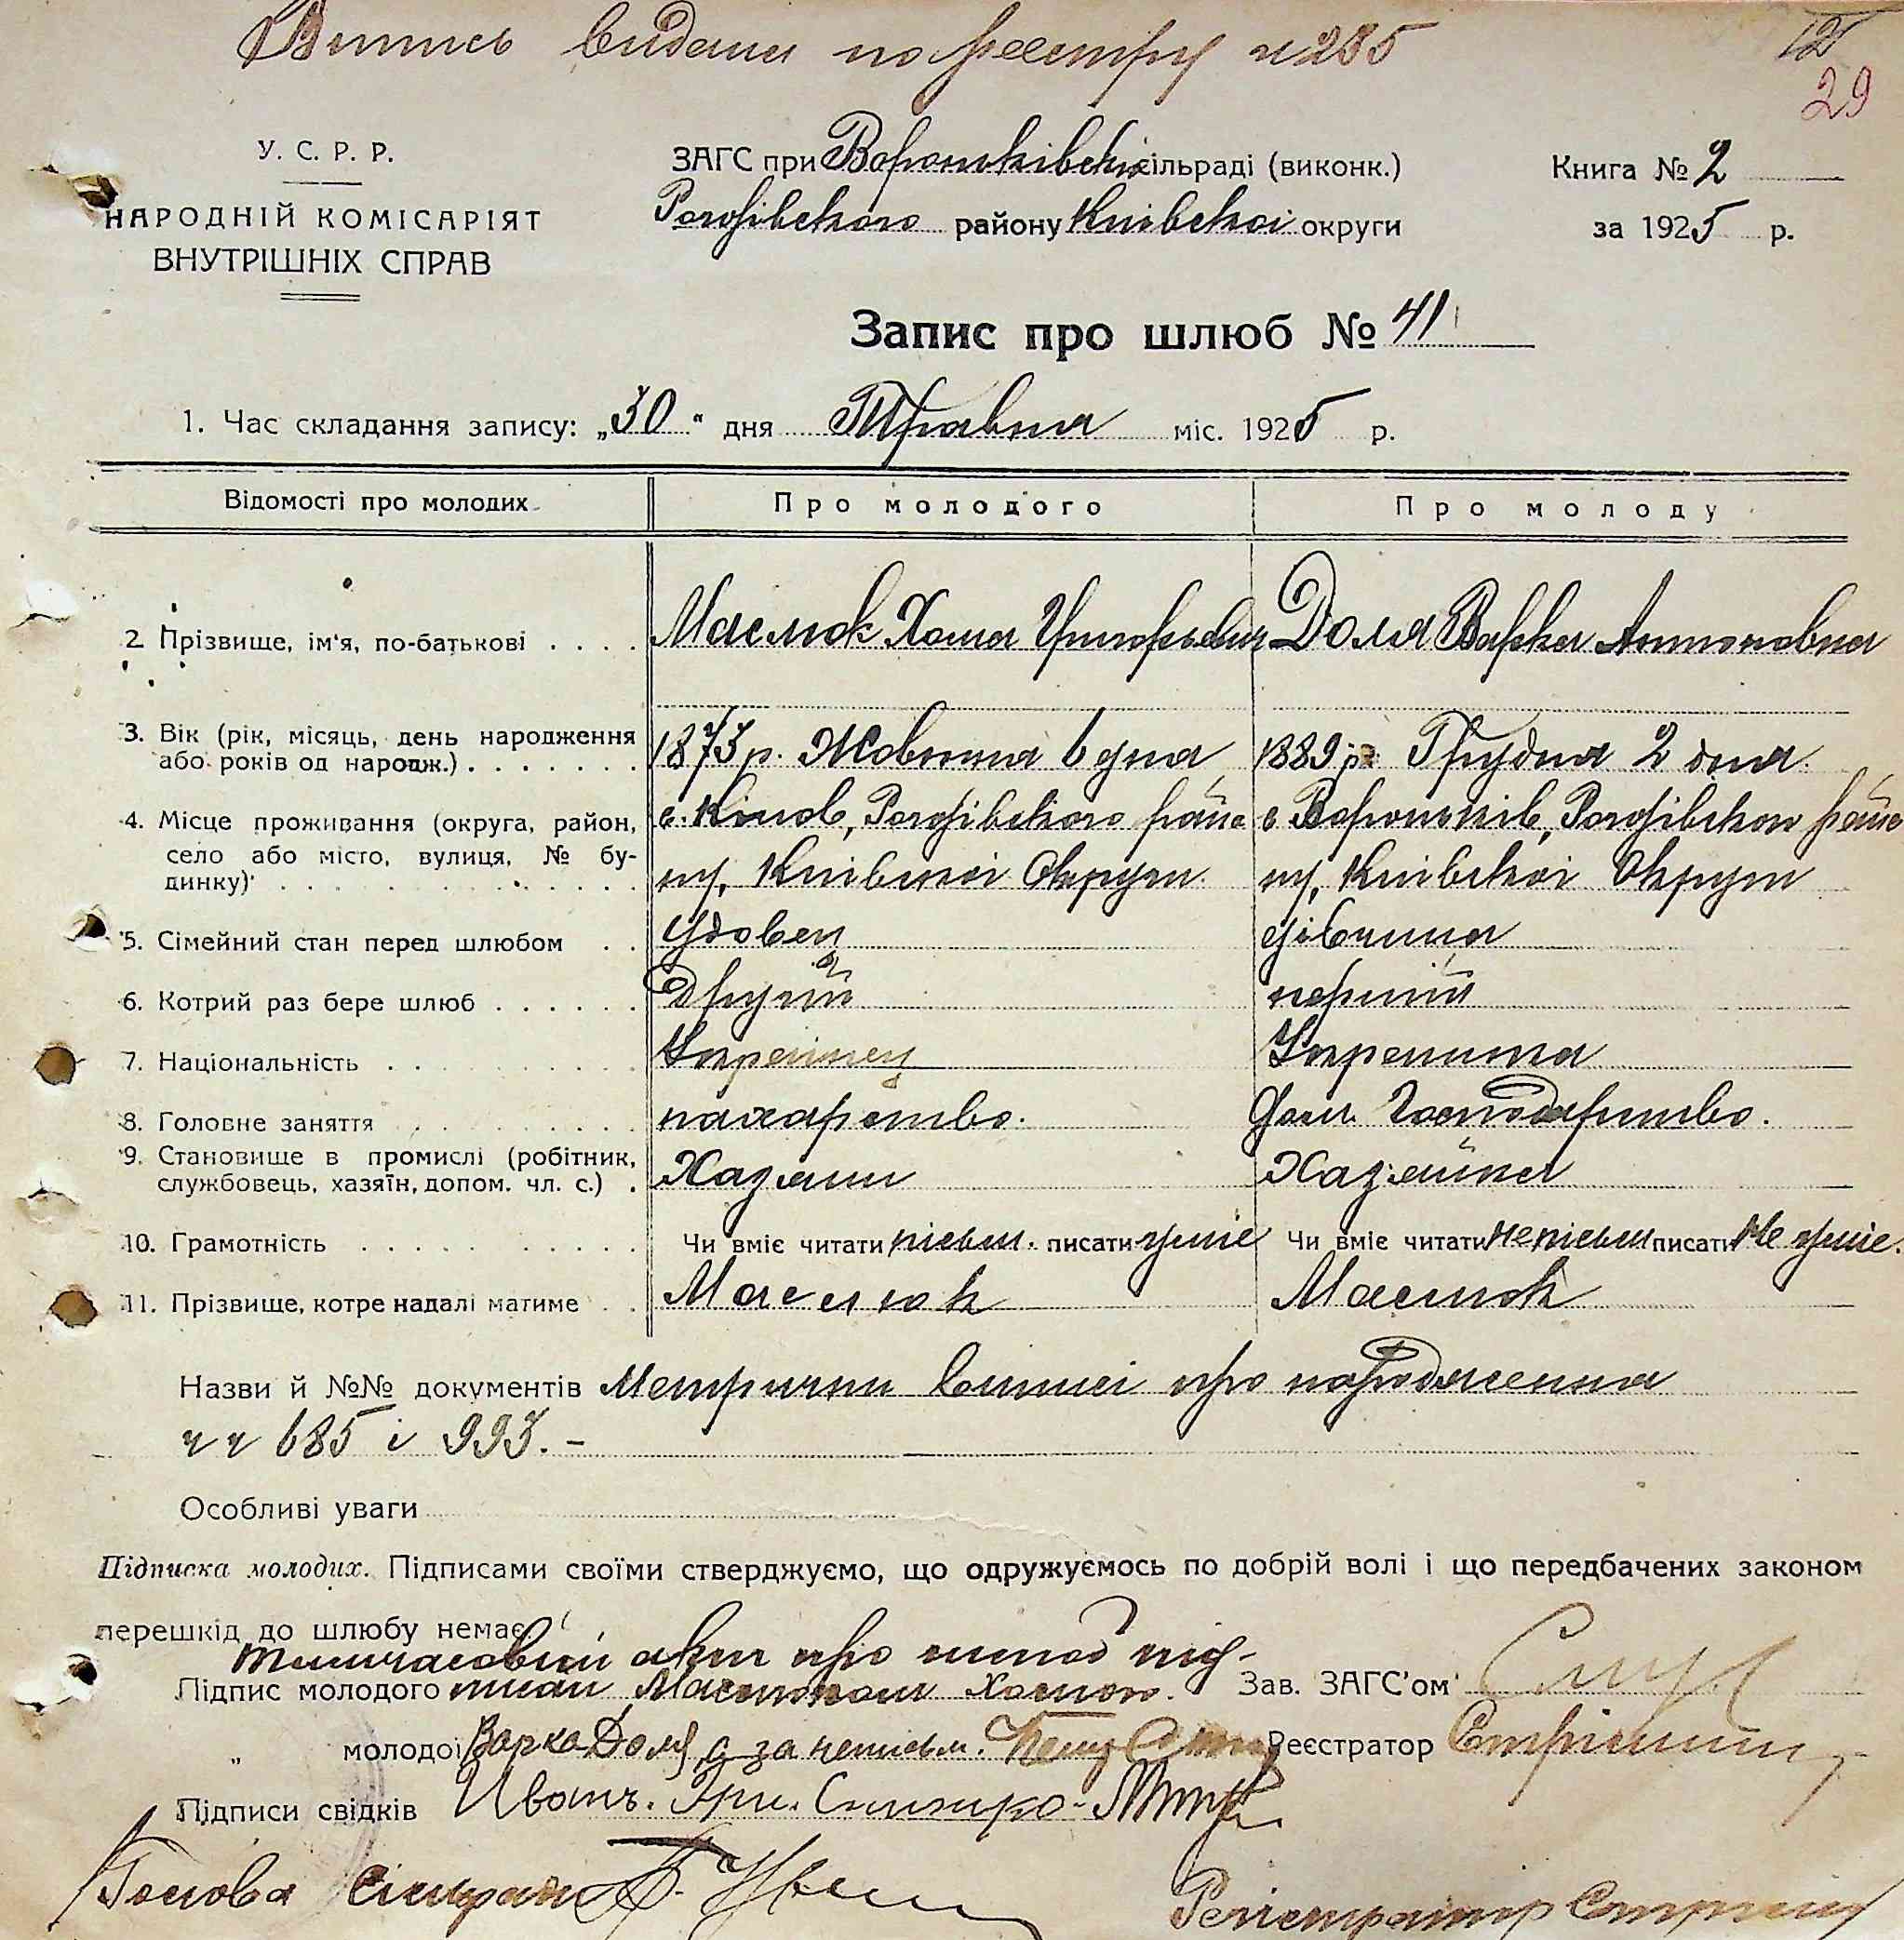 Витпись видани по реестру н 285
12
29
У. С. Р. Р.
НАРОДНІЙ КОМІСАРІЯТ
ВНУТРІШНІХ СПРАВ
ЗАГС при Вороньківські сільраді (виконк.)
Рогозівського району Київської округи
Книга № 2
за 1925 р.
Запис про шлюб № 41
1. Час складання запису: „30" дня Травня міс. 1925 р.
Відомості про молодих
Про молодого
Про молоду
2. Прізвище, ім'я, по-батькові . . . . Маслюк Хома Григорьевич Доля Варка Антоновна
3. Вік (рік, місяць, день народження або років од народж.) . . . . . . . 1873 р. Жовтня 6 дня 1889 р. Грудня 2 дня.
4. Місце проживання (округа, район, село або місто, вулиця, № будинку) Рогозівського райо ну, Київської Округи с Вороньків, Рогозівского райо ну, Київської Округи
5. Сімейний стан перед шлюбом . . Удовец дівчина
6. Котрий раз бере шлюб . . . . . . Другий перший
7. Національність . . . . . . . . . . Украінец Украинка
8. Головне заняття . . . . . . . . . пахарство. Дом. Господарство.
9. Становище в промислі (робітник, службовець, хазяїн, допом. чл. с.) . Хазяин Хазяйка
10. Грамотність . . . . . . . . . . Чи вміє читати писати уміе Чи вміє читати писати Не уміе.
11. Прізвище, котре надалі матиме . . Маслюк Маслюк
Назви й №№ документів Метрични виписі про народження
ч ч 685 і 993. –
Особливі уваги
Підписка молодих. Підписами своїми стверджуємо, що одружуємось по добрій волі і що передбачених законом
перешкід до шлюбу немає.
Тимчасовий акт про шлюб під-
Підпис молодого писай Маслюком Хомою. Зав. ЗАГС'ом
„ молодої Варка Доля а за Реєстратор
Підписи свідків Иванъ. Гри.
Голова сільради
Регистратор